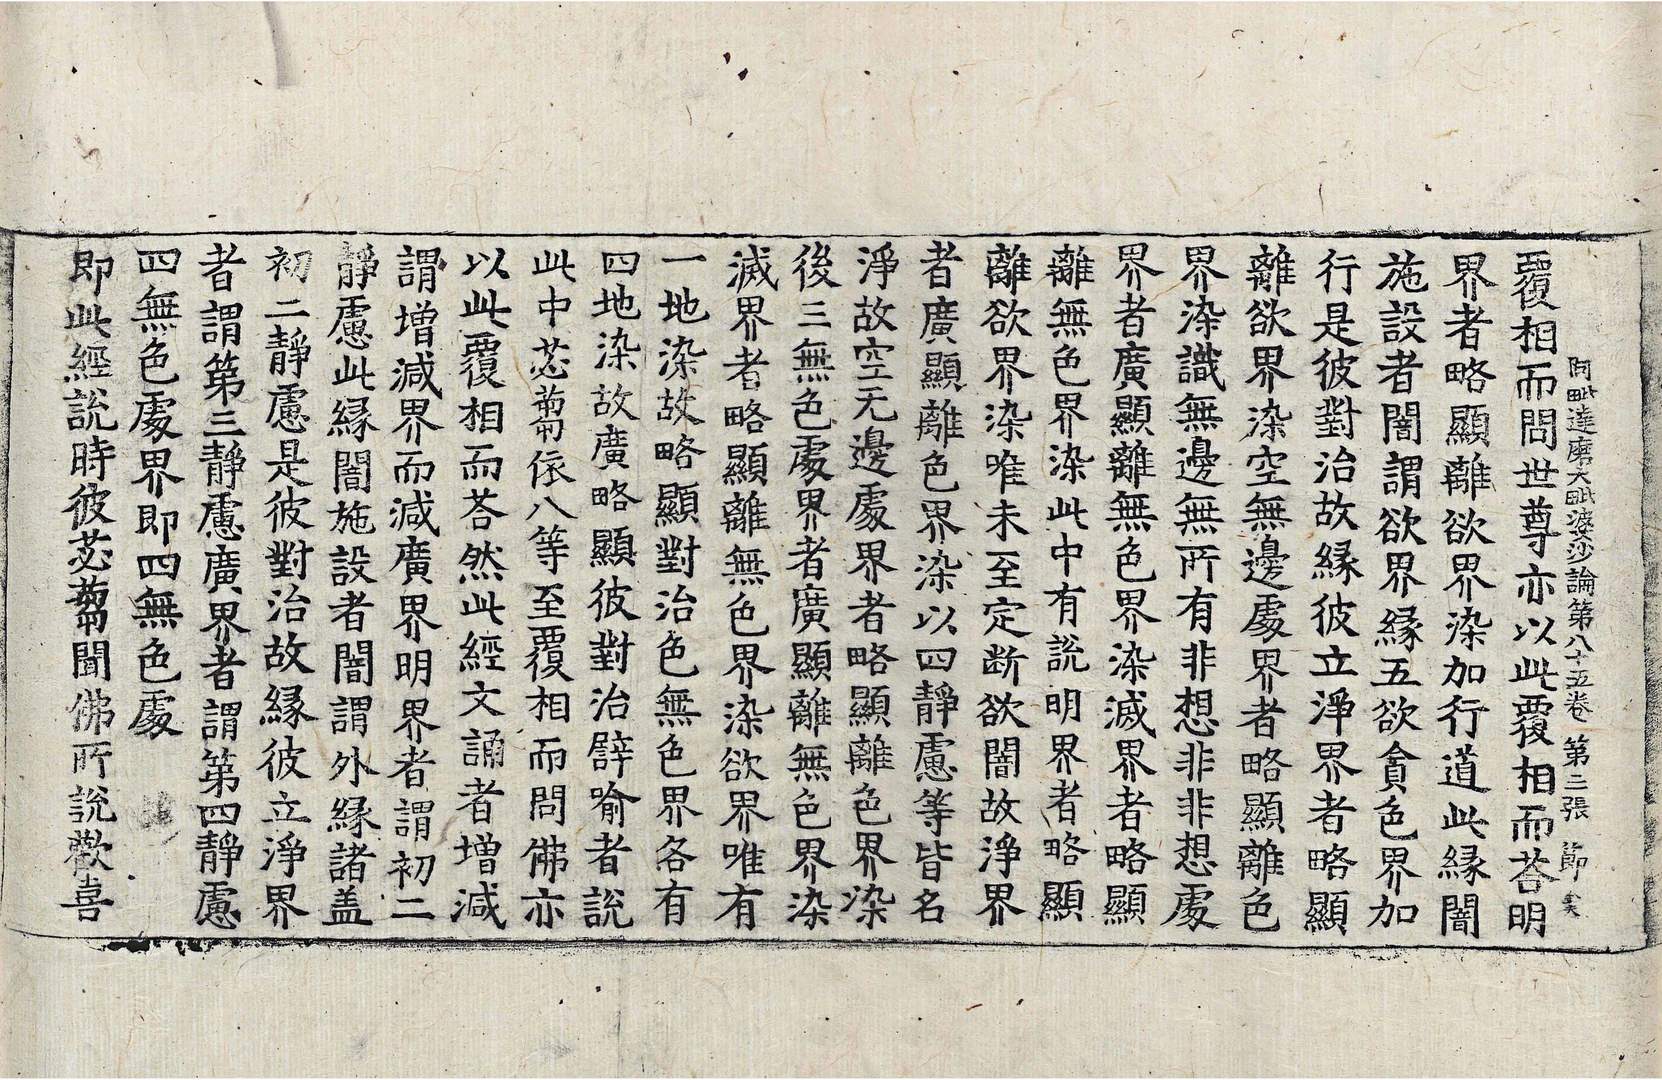 阿毗達磨大毗婆沙論第八十五卷 第二張 節
覆相而問世尊亦以此覆相而荅明
界者略顯離欲界染加行道此緣闇
施設者闇謂欲界緣五欲貪色界加
行是彼對治故緣彼立淨界者略顯
離欲界染空無邊處界者略顯離色
界染識無邊無所有非想非非想處
界者廣顯離無色界染滅界者略顯
離無色界染此中有說明界者略顯
離欲界染唯未至定断欲闇故淨界
者廣顯離色界染以四靜慮等皆名
淨故空无邊處界者略顯離色界染
後三無色處界者廣顯離無色界染
滅界者略顯離無色界染欲界唯有
一地染故略顯對治色無色界各有
四地染故廣略顯彼對治譬喻者說
此中苾蒭依八等至覆相而問佛亦
以此覆相而荅然此經文誦者增減
謂增減界而減廣界明界者謂初二
靜慮此緣闇施設者闇謂外緣諸盖
初二靜慮是彼對治故緣彼立淨界
者謂第三靜慮廣界者謂第四靜慮
四無色處界即四無色處
即此經說時彼苾蒭聞佛所說歡喜